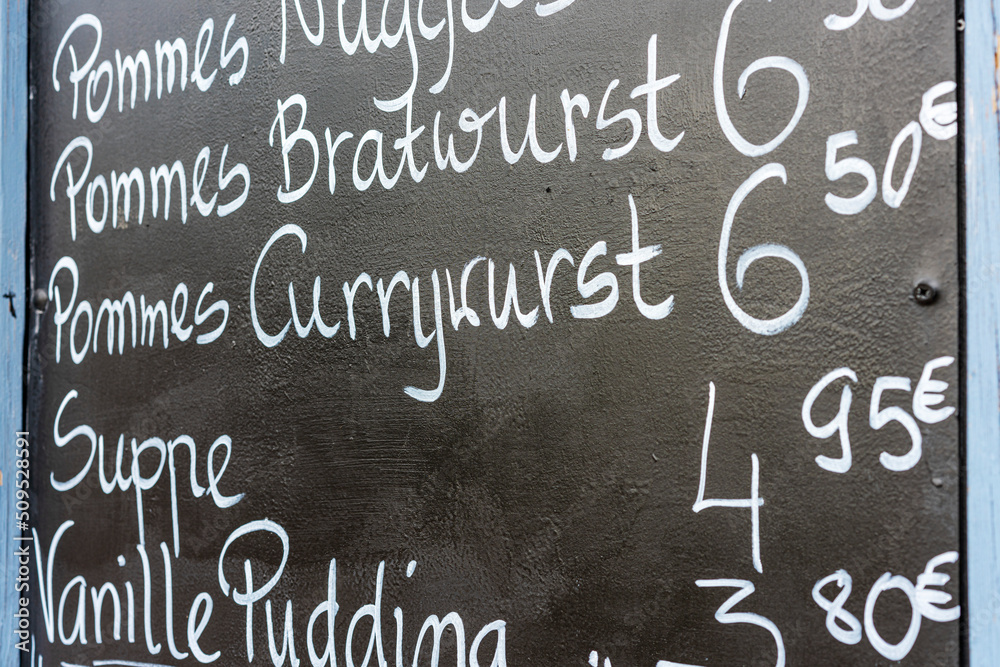 Pommes Nuggets
Pommes Bratwurst 6
Pommes Currywurst 6 50€
Suppe 4 95€
Vanille Pudding 3 80€
Adobe Stock | #509528591